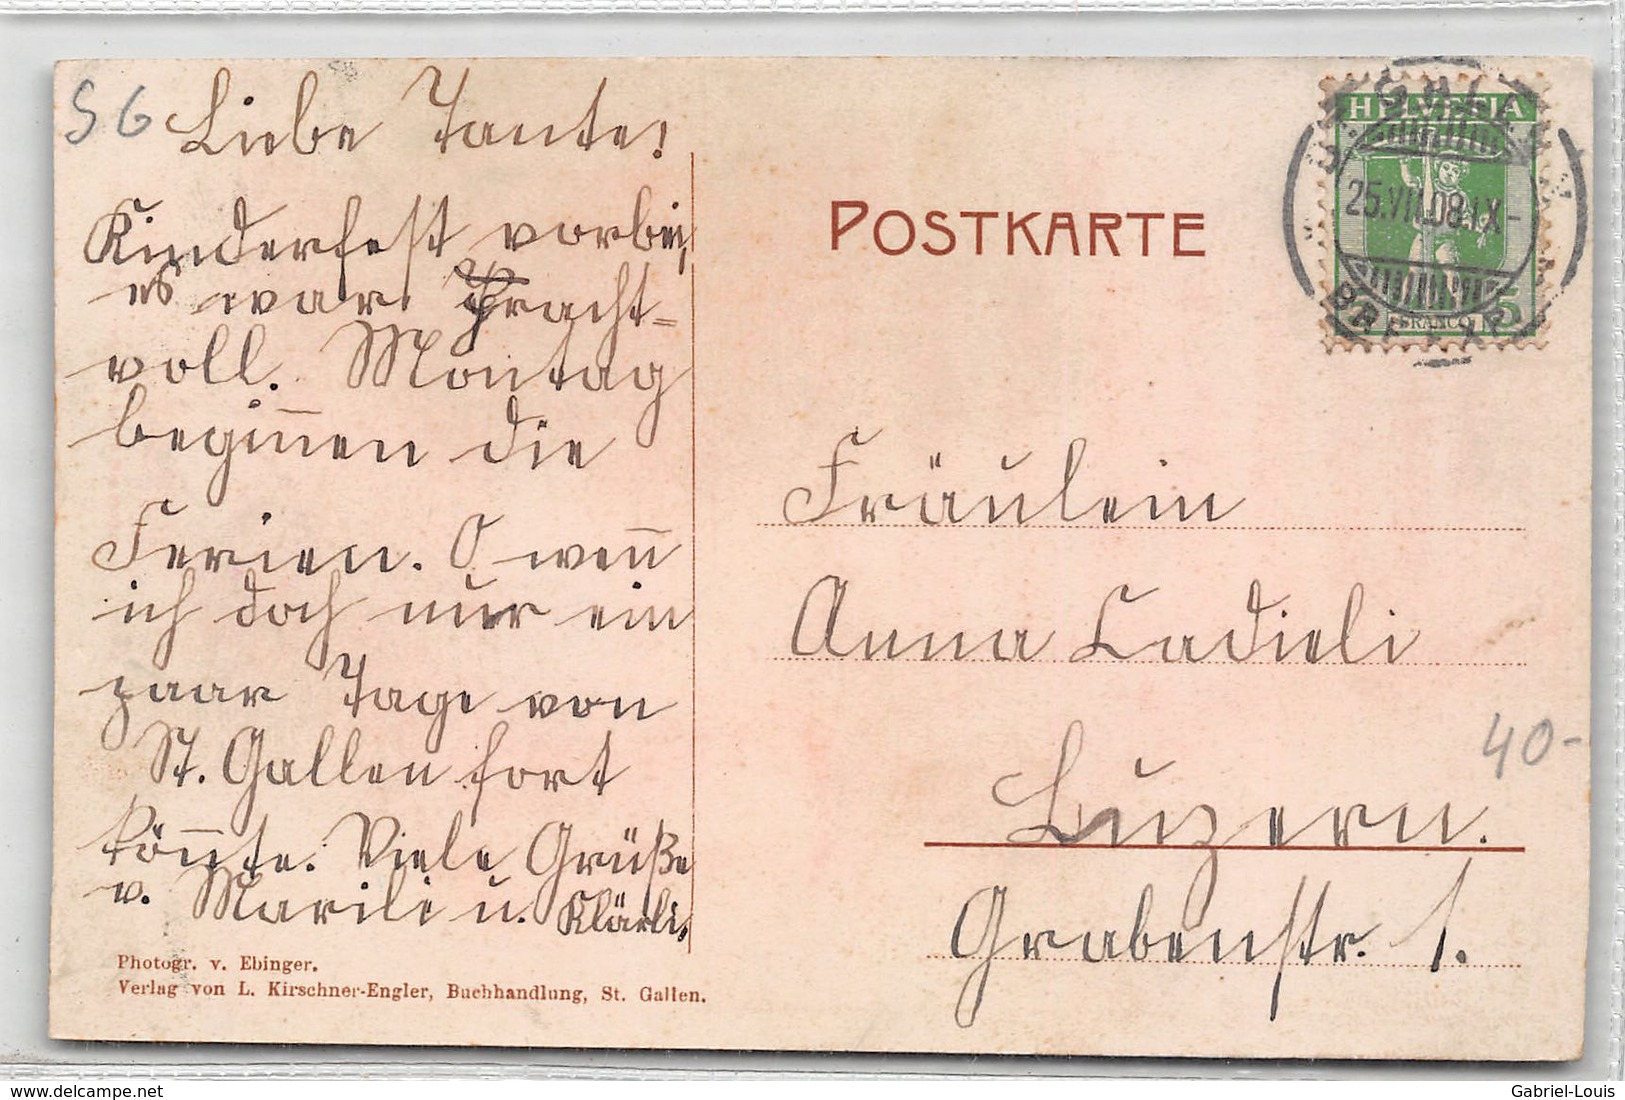 SG Liebe Tante!
Kinderfest vorbei,
es war pracht-
voll. Montag
begin̅en die
Ferien. O wen̅
ich doch nur ein
paar Tage von
St. Gallen fort
kön̅te. Viele Grüße
v. Marili u. Klärli.
Photogr. v. Ebinger.
Verlag von L. Kirschner-Engler, Buchhandlung, St. Gallen.
POSTKARTE
HELVETIA
25.VII.08.IX-
FRANCO 5
Fräulein
Anna Cadieli
Luzern.
Grabenstr. 1.
40-
delcampe.net
Gabriel-Louis